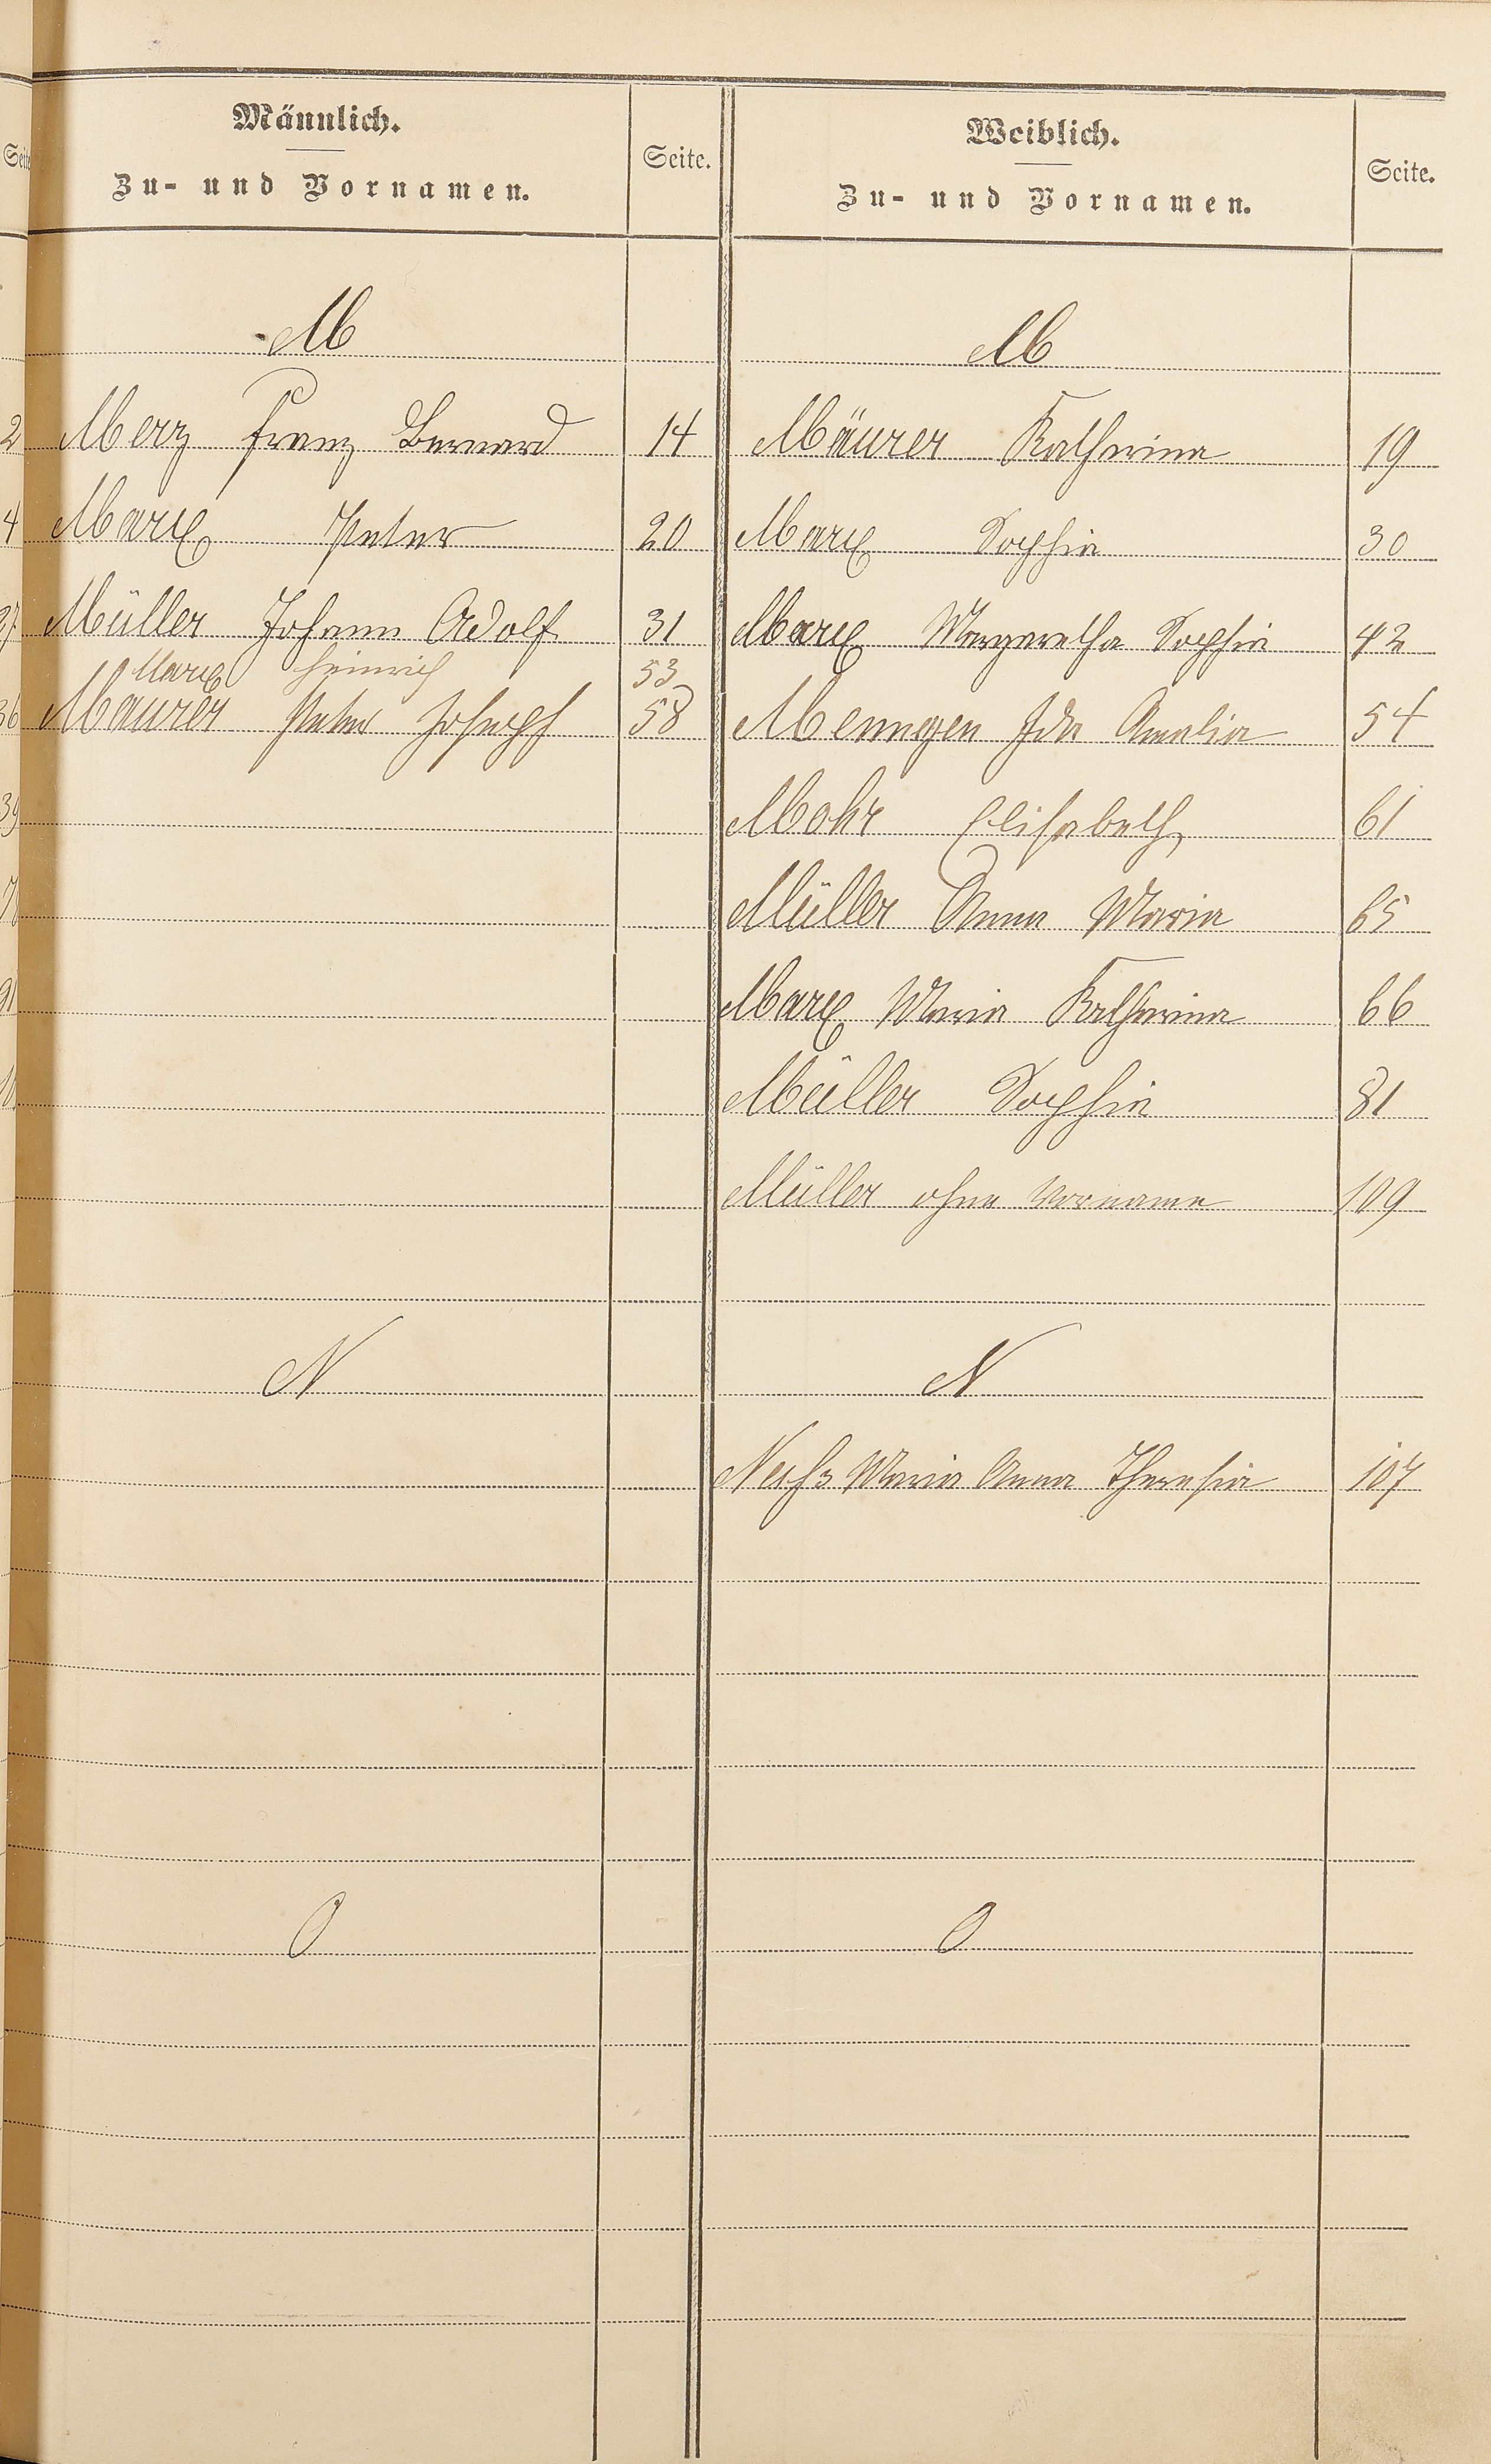 Männlich.
Zu- und Vornamen.
Seite.
Weiblich.
Zu- und Vornamen.
Seite.
M
M
Merz Franz Bernard 14
Mäurer Katharina 19
Marx Peter 20
Marx Sophia 30
Müller Johann Adolf 31
Marx Margaretha Sophia 42
Marx Heinrich 53
Maurer Peter Joseph 58
Menngen Ida Amalia 54
Mohr Elisabeth 61
Müller Anna Maria 65
Marx Maria Katharina 66
Müller Sophia 81
Müller ohne Vorname 109
N
N
Maria Anna Theresia 107
O
O